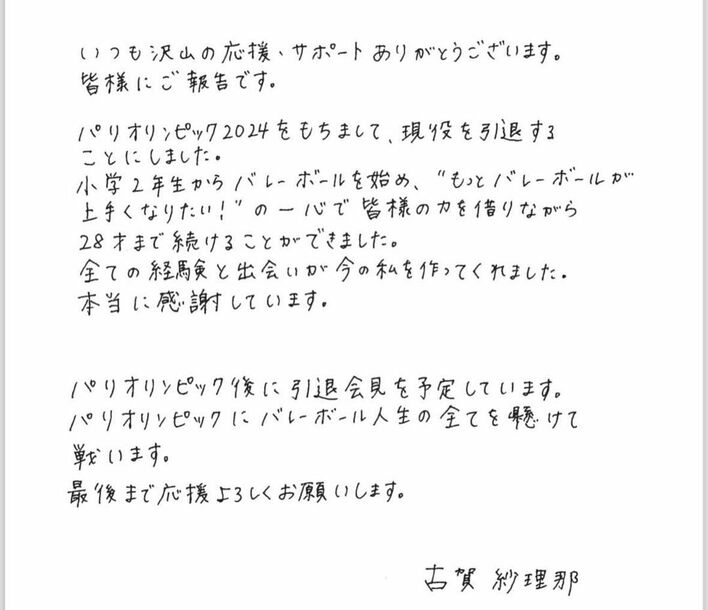 いつも沢山の応援、サポートありがとうございます。
皆様にご報告です。
パリオリンピック2024をもちまして、現役を引退する
ことにしました。
小学2年生からバレーボールを始め、“もっとバレーボールが
上手くなりたい!”の一心で皆様の力を借りながら
28才まで続けることができました。
全ての経験と出会いが今の私を作ってくれました。
本当に感謝しています。
パリオリンピック後に引退会見を予定しています。
パリオリンピックにバレーボール人生の全てを懸けて
戦います。
最後まで応援よろしくお願いします。
古賀 紗理那